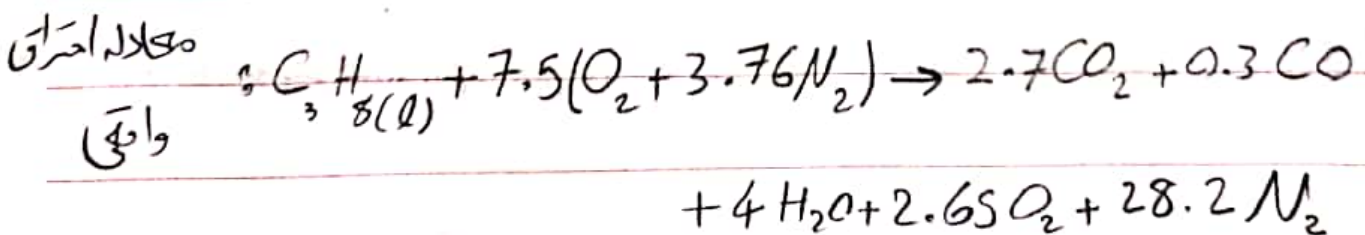 معادله احتراق
واقعی : C₃H₈(l) + 7.5(O₂ + 3.76N₂) → 2.7CO₂ + 0.3CO
+ 4H₂O + 2.65O₂ + 28.2N₂